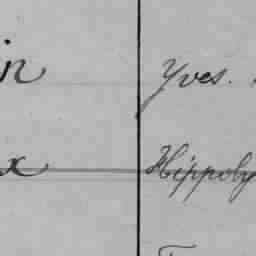 in Yves.
x Hippoly